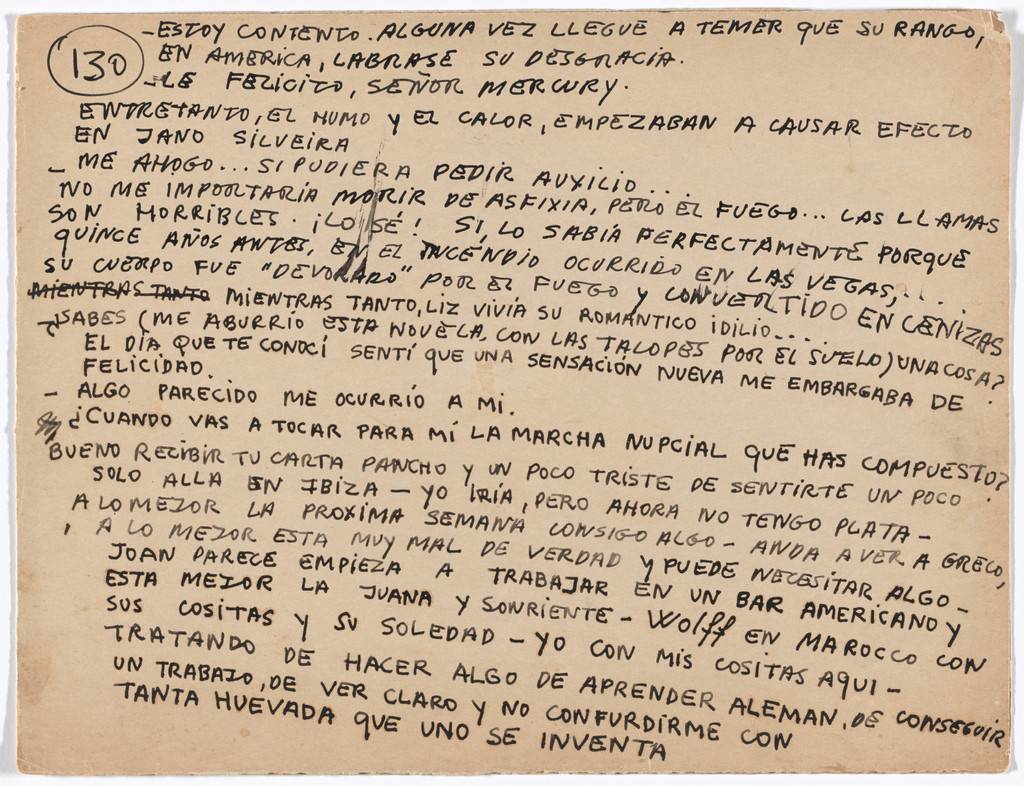 130
- ESTOY CONTENTO. ALGUNA VEZ LLEGUE A TEMER QUE SU RANGO,
EN AMERICA, LABRASE SU DESGRACIA.
- LE FELICITO, SEÑOR MERCURY.
ENTRETANTO, EL HUMO Y EL CALOR, EMPEZABAN A CAUSAR EFECTO
EN JANO SILVEIRA
- ME AHOGO... SI PUDIERA PEDIR AUXILIO...
NO ME IMPORTARÍA MORIR DE ASFIXIA, PERO EL FUEGO... LAS LLAMAS
SON HORRIBLES. ¡LO SÉ! SI, LO SABÍA PERFECTAMENTE PORQUE
QUINCE AÑOS ANTES, EN EL INCENDIO OCURRIDO EN LAS VEGAS,...
SU CUERPO FUE "DEVORADO" POR EL FUEGO Y CONVERTIDO EN CENIZAS
MIENTRAS TANTO MIENTRAS TANTO, LIZ VIVÍA SU ROMÁNTICO IDILIO....
- ¿SABES (ME ABURRÍO ESTA NOVELA, CON LAS TALOPES POR EL SUELO) UNA COSA?
EL DÍA QUE TE CONOCÍ SENTÍ QUE UNA SENSACIÓN NUEVA ME EMBARGABA DE
FELICIDAD.
- ALGO PARECIDO ME OCURRIÓ A MI.
¿CUANDO VAS A TOCAR PARA MÍ LA MARCHA NUPCIAL QUE HAS COMPUESTO?
BUENO RECIBIR TU CARTA PANCHO Y UN POCO TRISTE DE SENTIRTE UN POCO
SOLO ALLA EN IBIZA - YO IRÍA, PERO AHORA NO TENGO PLATA -
A LO MEJOR LA PROXIMA SEMANA CONSIGO ALGO - ANDA A VER A GRECO,
A LO MEJOR ESTA MUY MAL DE VERDAD Y PUEDE NECESITAR ALGO -
JOAN PARECE EMPIEZA A TRABAJAR EN UN BAR AMERICANO Y
ESTA MEJOR LA JUANA Y SONRIENTE - Wolff EN MAROCCO CON
SUS COSITAS Y SU SOLEDAD - YO CON MIS COSITAS AQUI -
TRATANDO DE HACER ALGO DE APRENDER ALEMAN, DE CONSEGUIR
UN TRABAJO, DE VER CLARO Y NO CONFURDIRME CON
TANTA HUEVADA QUE UNO SE INVENTA